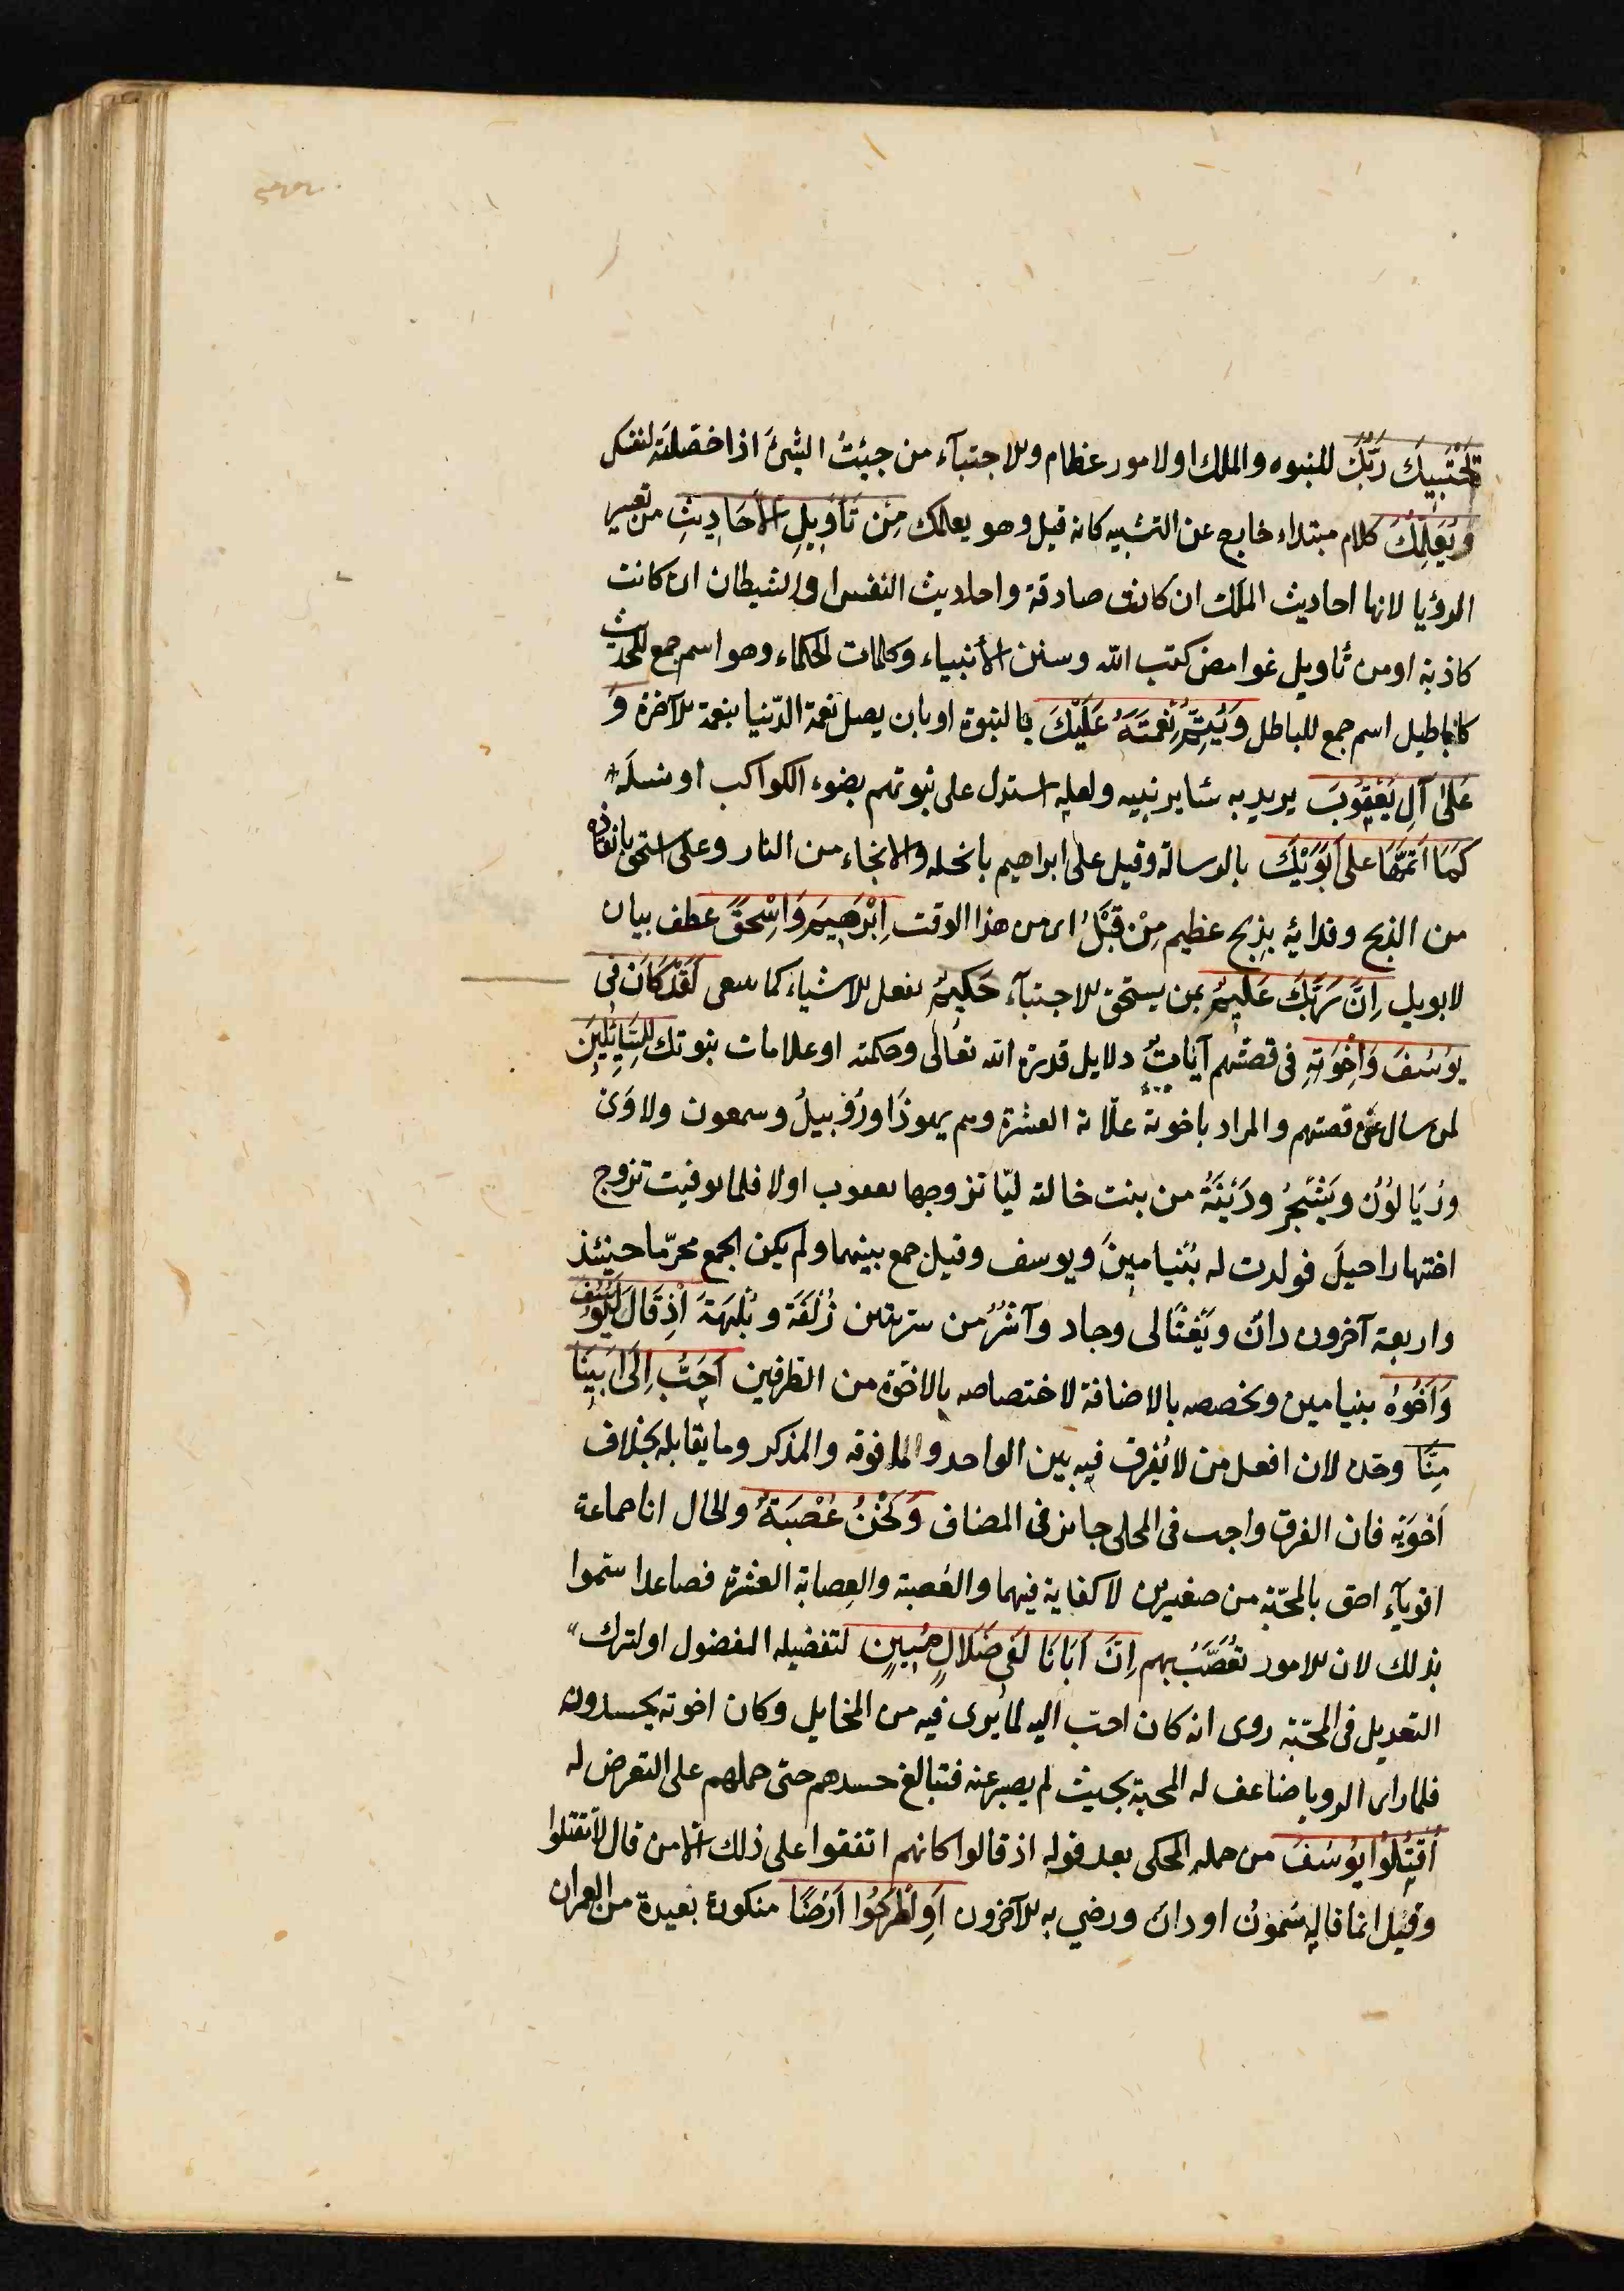 يَجْتَبِيكَ رَبُّكَ للنبوه والملك او لامور عظام والاجتبآء من جبيتُ الشئَ اذا حصلتَه لنفسك
وَيُعَلِّمُكَ كلام مبتداء خارج عن التشبيه كانه قيل وهو يعلمك مِنْ تَأوِيلِ الأَحَادِيثِ من تعبير
الرؤيا لانها احاديث الملك ان كانت صادقة واحاديث النفس او الشيطان ان كانت
كاذبة او من تأويل غوامض كتب الله وسنن الأنبياء وكلمات الحكماء وهو اسم جمع للحديث
كاباطيل اسم جمع للباطل وَيُتِمُّ نِعْمَتَهُ عَلَيْكَ بالنبوة او بان يصل نعمة الدّنيا بنعمة الآخرة وَ
عَلىٰ آلِ يَعْقُوبَ يريد به سائر بنيه ولعله استدل على نبوتهم بضوء الكواكب او نسلَه
كَمَا اَتَمَّهَا على اَبَوَيْكَ بالرسالة وقيل على ابراهيم بالخلة والانجاء من النار وعلى اسحق بانقاذه
من الذبح وفدائه بِذِبح عظيم مِنْ قَبْلُ اى من هذا الوقت اِبْرَهِيمَ وَاِسْحٰقَ عطف بيان
لابويك اِنَّ رَبَّكَ عَلِيمٌ بمن يستحق الاجتبآء حَكِيمٌ يفعل الاشياء كما ينبغى لَقَدْ كَانَ فى
يُوسُفَ وَاِخْوَتِهِ فى قصتهم آيَاتٌ دلايل قدرة الله تعالى وحكمته او علامات نبوتك لِلسَّائِلِينَ
لمن سال عن قصتهم والمراد باخوته علّاته العشرة وهم يهوذَا ورُوْبيلُ وسمعون ولاوَىْ
وزبَالُوُن ويَشْجَرُ ودَيْنَةُ من بنت خالته ليّا تزوجها يعقوب اولا فلما توفيت تزوج
اختها راحيلَ فولدت له بُنْيامينَ ويوسف وقيل جمع بينهما ولم يكن الجمع محرّما حينئذ
واربعة آخرون دانْ ويَفْثَالى وجاد وآشَرُ من سريتين زُلْفَة وبُلْهَةَ اِذْ قَالَ لَيُوسُفُ
وَاَخُوهُ بنيامين وتخصصه بالاضافة لاختصاصه بالاخوّة من الطرفين اَحَبُّ اِلَى اَبِينَا
مِنَّا وحّده لان افعل من لا يُفرق فيه بين الواحد وما فوقه والمذكر وما يقابله بخلاف
اَخَوَيْه فان الفرق واجب فى المحلى جايز فى المضاف وَنَحْنُ عُصْبَةٌ والحال انا جماعة
اقويآءِ احق بالمحبّة من صغيرين لا كفاية فيهما والعُصبة والعِصابة العشرة فصاعدا سمّوا
بذلك لان الامور تُعصَّبُ بهم اِنَّ اَبَانَا لَفِى ضَلالٍ مُبِينٍ لتفضيله المفضول او لترك
التعديل فى المحبّة روى انه كان احبّ اليه لما يرى فيه من المخايل وكان اخوته يحسدونه
فلما راى الرويا ضاعف له المحبة بحيث لم يصبر عنه فتبالغ حسدهم حتى حملهم على التعرض له
اُقْتُلُوا يُوسُفَ من جمله المحكى بعد قوله اذ قالوا كانهم اتفقوا على ذلك الا من قال لا تقتلوا
وقيل انما قاله شمعونُ او دان ورضي به الآخرون اَوِ اطْرَحُوا اَرْضًا منكورة بعيدة من العمران